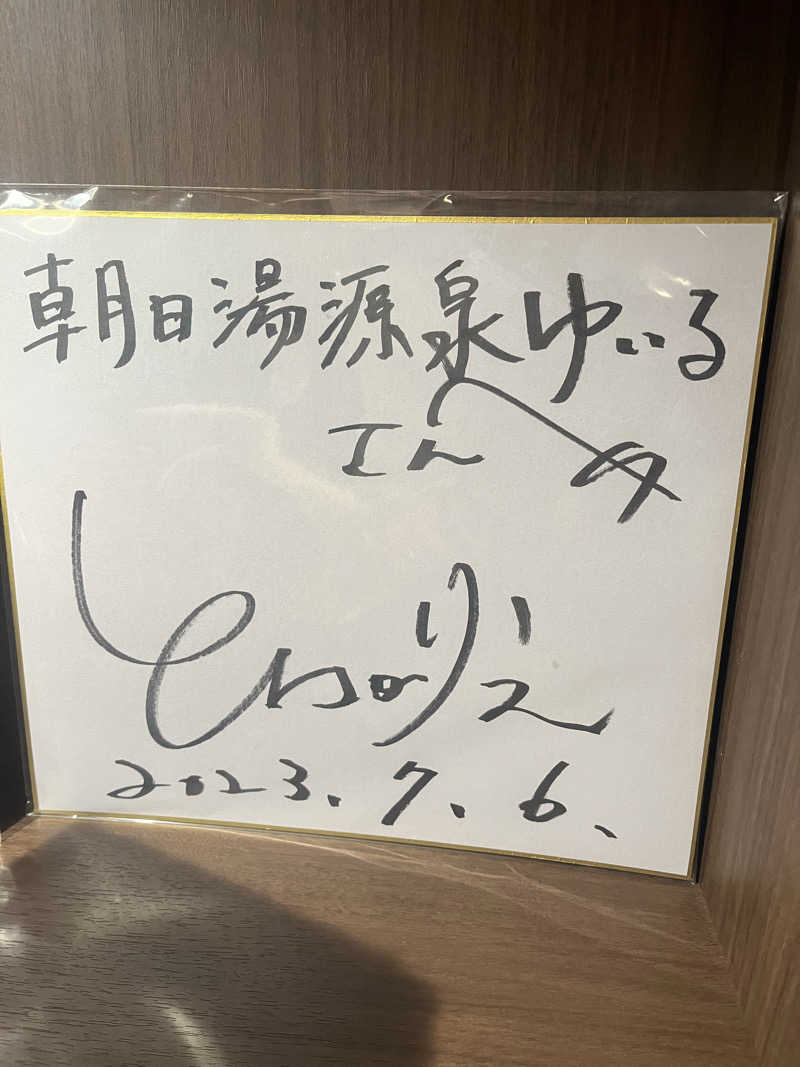 朝日湯源泉ゆいる
さんへ
2023.7.6、